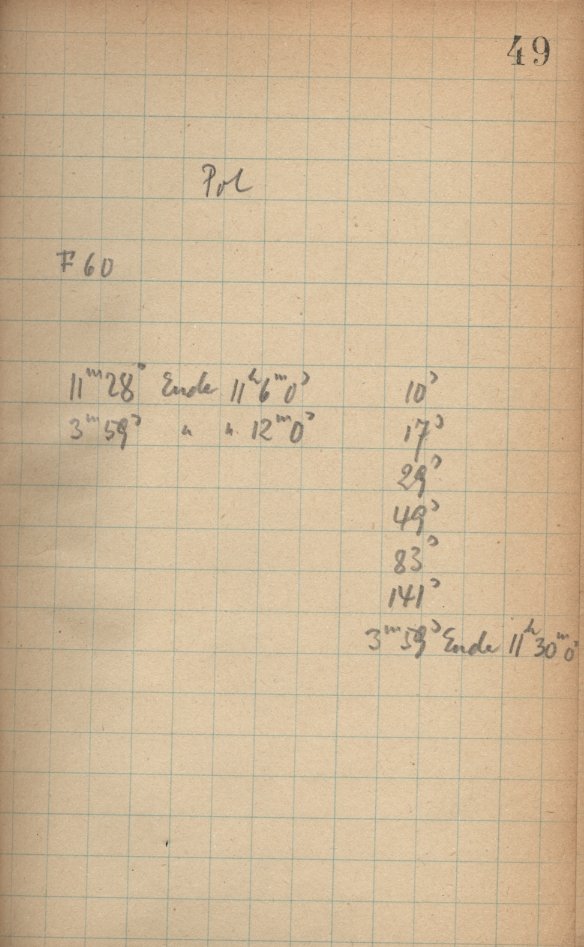 49
Pol
F 60
11ᵐ28ˢ Ende 11ʰ6ᵐ0ˢ 10ˢ
3ᵐ59ˢ " " 12ᵐ0ˢ 17ˢ
29ˢ
49ˢ
83ˢ
141ˢ
3ᵐ59ˢ Ende 11ʰ30ᵐ0ˢ